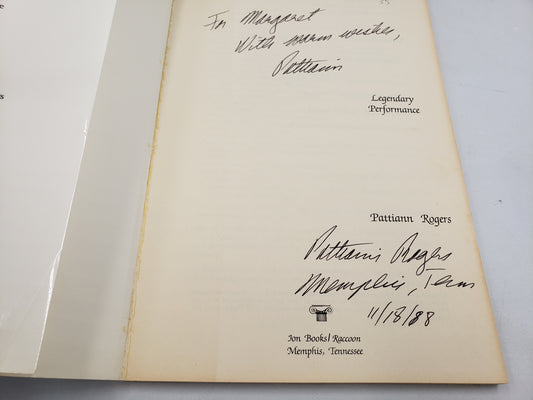 For Margaret
With warm wishes,
Pattiann
Legendary
Performance
Pattiann Rogers
Pattiann Rogers
Memphis, Tenn
11/18/88
Ion Books/Raccoon
Memphis, Tennessee